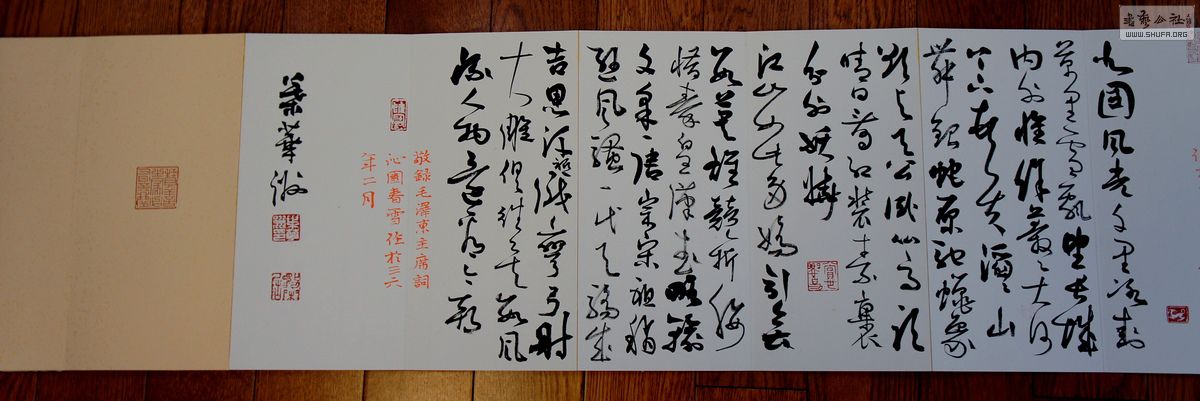 北国风光千里冰封
萬里雪飘望长城
内外惟余莽莽大河
上下顿失滔滔山
舞银蛇原驰蜡象
欲与天公试比高须
晴日看红装素裹
分外妖娆
江山如此多娇引无
数英雄競折腰
惜秦皇漢武略输
文采唐宗宋祖稍
逊风骚一代天骄成
吉思汗只识弯弓射
大雕俱往矣数风
流人物还看今朝
敬録毛澤東主席詞
沁園春雪作於三六
年二月
WWW.SHUFA.ORG